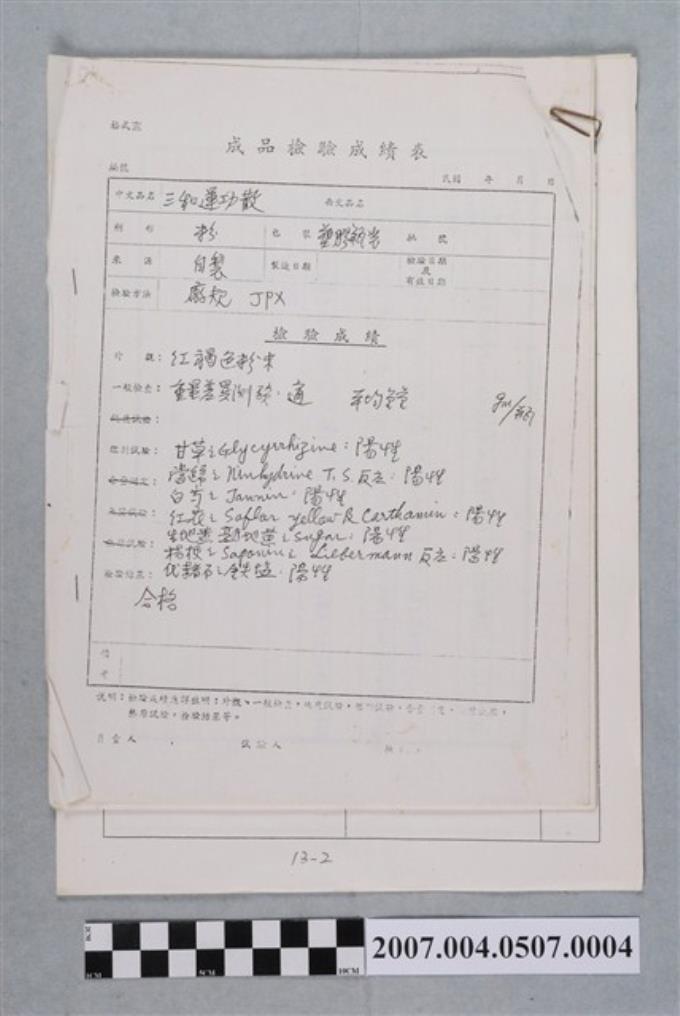 格式六
成品檢驗成績表
編號
民國 年 月 日
中文品名 三和運功散 英文品名
劑 形 粉 包 裝 塑膠瓶裝 批 號
來 源 自製 製造日期 檢驗日期及有效日期
檢驗方法 廠規 JPX
檢驗成績
外 觀：紅褐色粉末
一般檢查：重量差異測驗：適 平均含量 gm/瓶
純度試驗：
鑑別試驗：甘草之Glycyrrhizine：陽性
當歸之Ninhydrine T.S.反應：陽性
白芍之Tannin：陽性
紅花之Saflor yellow & Carthamin：陽性
生地黃 熟地黃之Sugar：陽性
桔梗之Saponin之Liebermann反應：陽性
檢驗結果：代赭石之鐵鹽：陽性
合格
備
考
說明：檢驗成績應詳註明：外觀、一般檢查，純度試驗，鑑別試驗，
熱原試驗，檢驗結果等。
負責人 試驗人
13-2
8CM
1CM
5CM
10CM
2007.004.0507.0004